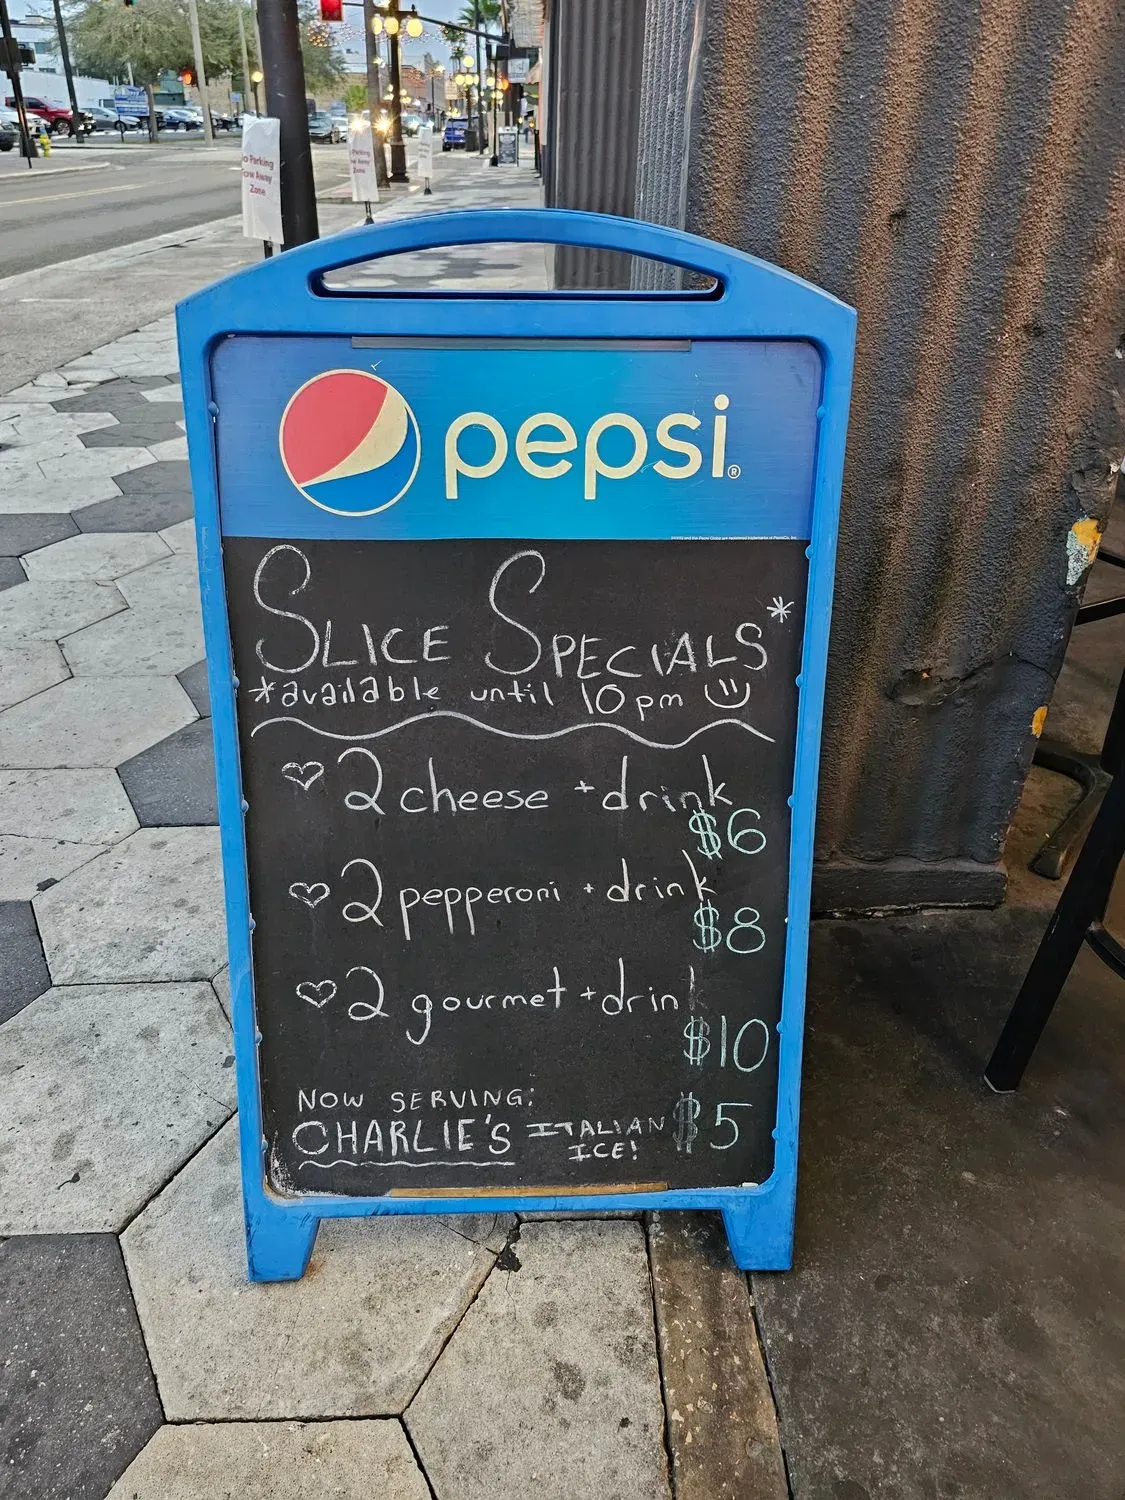 No Parking
Tow Away
Zone
pepsi®
SLICE SPECIALS*
*available until 10pm
2 cheese + drink
$6
2 pepperoni + drink
$8
2 gourmet + drink
$10
NOW SERVING:
CHARLIE'S ITALIAN ICE! $5